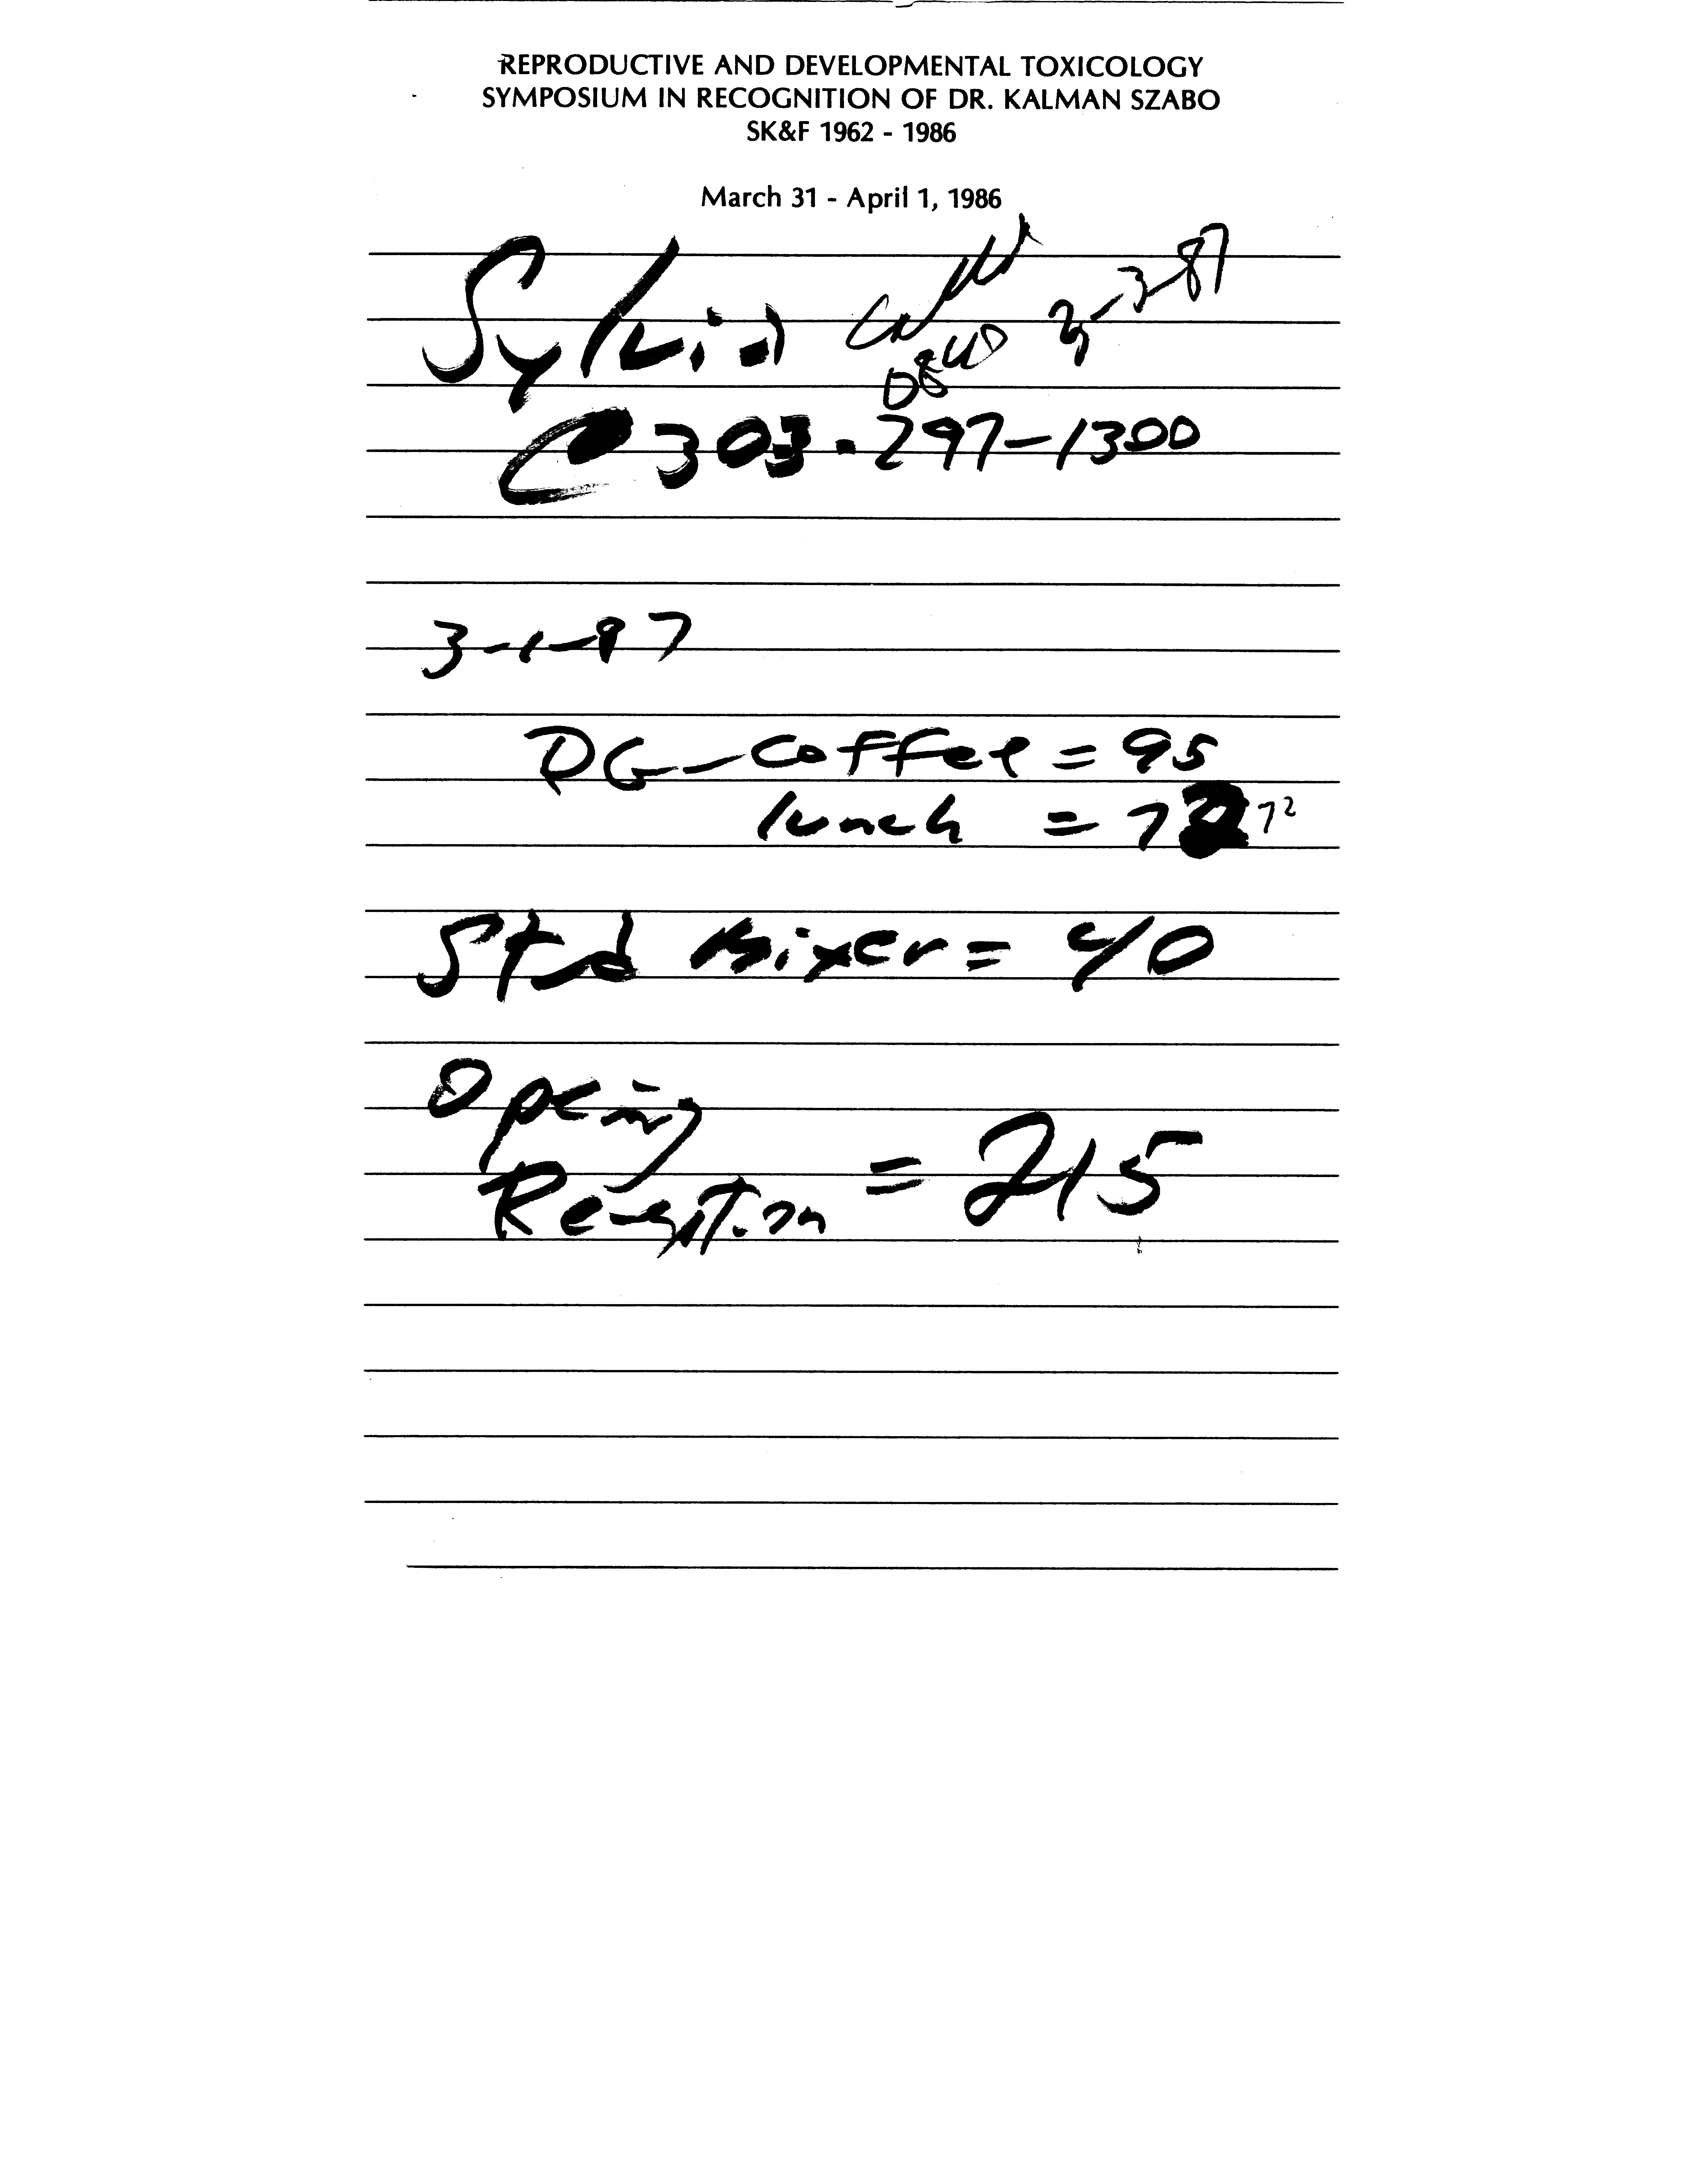 REPRODUCTIVE AND DEVELOPMENTAL TOXICOLOGY
SYMPOSIUM IN RECOGNITION OF DR. KALMAN SZABO
SK&F 1962 - 1986
March 31 - April 1, 1986
Sylvia
3-3-87
303-297-1300
3-1-87
DG-Coffee = 95
lunch = 72 72
Std Mixer = 40
Opening
Reception = 215